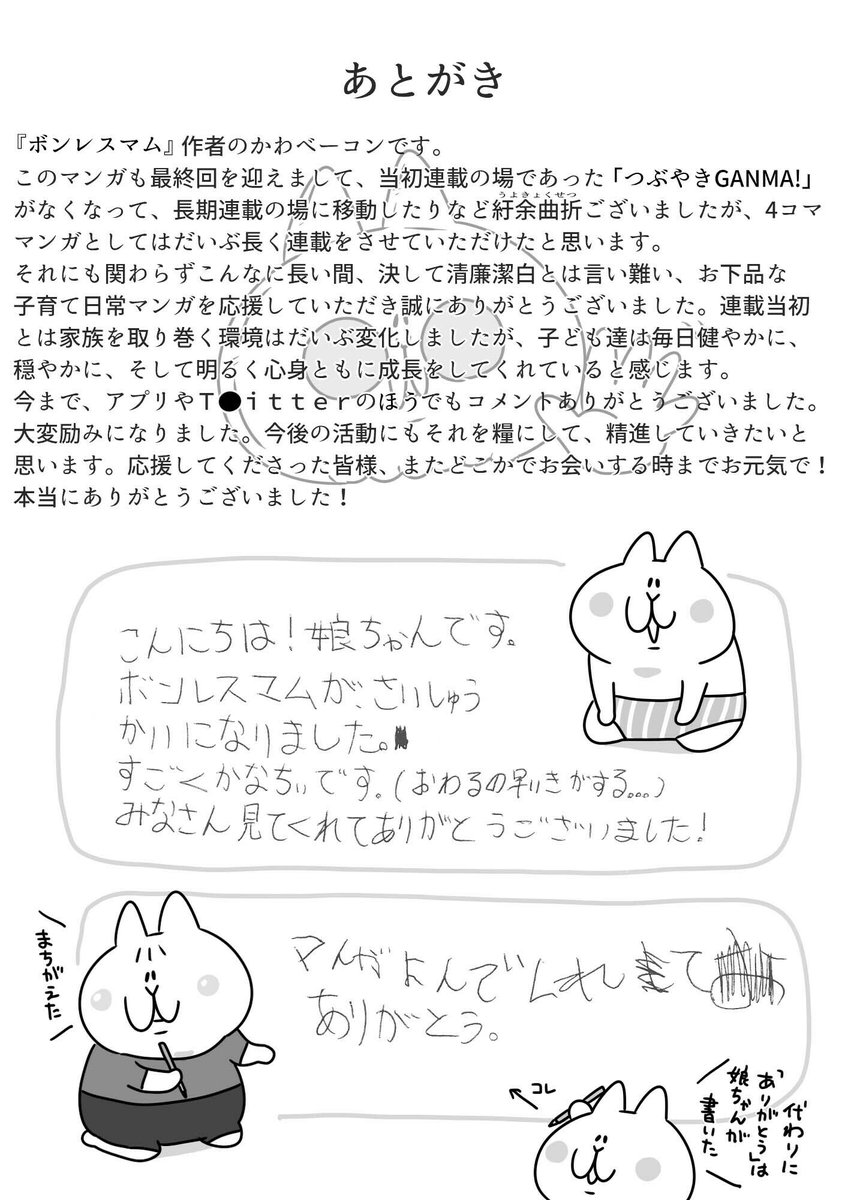 あとがき
『ボンレスマム』作者のかわベーコンです。
このマンガも最終回を迎えまして、当初連載の場であった「つぶやきGANMA!」
がなくなって、長期連載の場に移動したりなど紆余曲折ございましたが、4コマ
うよきょくせつ
マンガとしてはだいぶ長く連載をさせていただけたと思います。
それにも関わらずこんなに長い間、決して清廉潔白とは言い難い、お下品な
子育て日常マンガを応援していただき誠にありがとうございました。連載当初
とは家族を取り巻く環境はだいぶ変化しましたが、子ども達は毎日健やかに、
穏やかに、そして明るく心身ともに成長をしてくれていると感じます。
今まで、アプリやT●itterのほうでもコメントありがとうございました。
大変励みになりました。今後の活動にもそれを糧にして、精進していきたいと
思います。応援してくださった皆様、またどこかでお会いする時までお元気で！
本当にありがとうございました！
こんにちは！娘ちゃんです。
ボンレスマムが、さいしゅう
かいになりました。
すごくかなちぃです。(おわるの早いきがする…)
みなさん見てくれてありがとうございました！
まちがえた
マんがよんでくれて
ありがとう。
コレ
「ありがとう」は
娘ちゃんが
代わりに
書いた